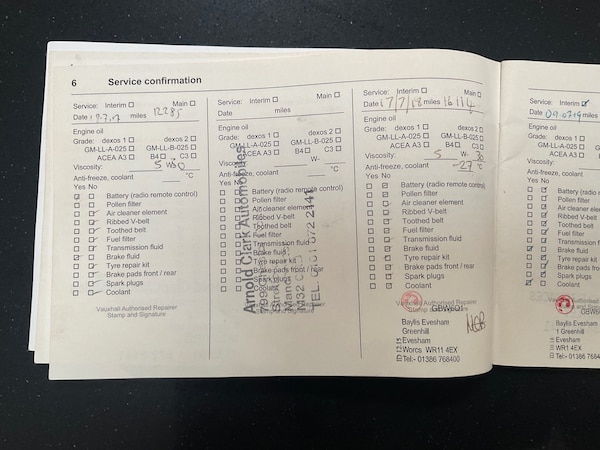 6 Service confirmation
Service: Interim Main
Date 7.7.17 12285 miles
Engine oil
Grade: dexos 1 dexos 2
GM-LL-A-025 GM-LL-B-025
ACEA A3 B4 C3
Viscosity: 5 W 30
Anti-freeze, coolant °C
Yes No
Battery (radio remote control)
Pollen filter
Air cleaner element
Ribbed V-belt
Toothed belt
Fuel filter
Transmission fluid
Brake fluid
Tyre repair kit
Brake pads front / rear
Spark plugs
Coolant
Vauxhall Authorised Repairer
Stamp and Signature
Service: Interim Main
Date miles
Engine oil
Grade: dexos 1 dexos 2
GM-LL-A-025 GM-LL-B-025
ACEA A3 B4 C3
Viscosity: W-
Anti-freeze, coolant °C
Yes No
Battery (radio remote control)
Pollen filter
Air cleaner element
Ribbed V-belt
Toothed belt
Fuel filter
Transmission fluid
Brake fluid
Tyre repair kit
Brake pads front / rear
Spark plugs
Coolant
Arnold Clark Automobiles
Service: Interim Main
Date 17/7/18 miles 16114
Engine oil
Grade: dexos 1 dexos 2
GM-LL-A-025 GM-LL-B-025
ACEA A3 B4 C3
Viscosity: 5 W- 30
Anti-freeze, coolant -27 °C
Yes No
Battery (radio remote control)
Pollen filter
Air cleaner element
Ribbed V-belt
Toothed belt
Fuel filter
Transmission fluid
Brake fluid
Tyre repair kit
Brake pads front / rear
Spark plugs
Coolant
Vauxhall Authorised Repairer
Stamp and Signature
GBW601
Baylis Evesham
Greenhill
Evesham
Worcs WR11 4EX
Tel:- 01386 768400
Service: Interim
Date miles
Engine oil
Grade: dexos 1
GM-LL-A-025
ACEA A3
Viscosity:
Anti-freeze, coolant
Yes No
Battery
Pollen
Air cle
Ribbed
Toothe
Fuel filt
Transm
Brake fl
Tyre rep
Brake p
Spark pl
Coolant
Baylis Evesham
1 Greenhill
Evesham
WR1 4EX
Tel:- 01386 768